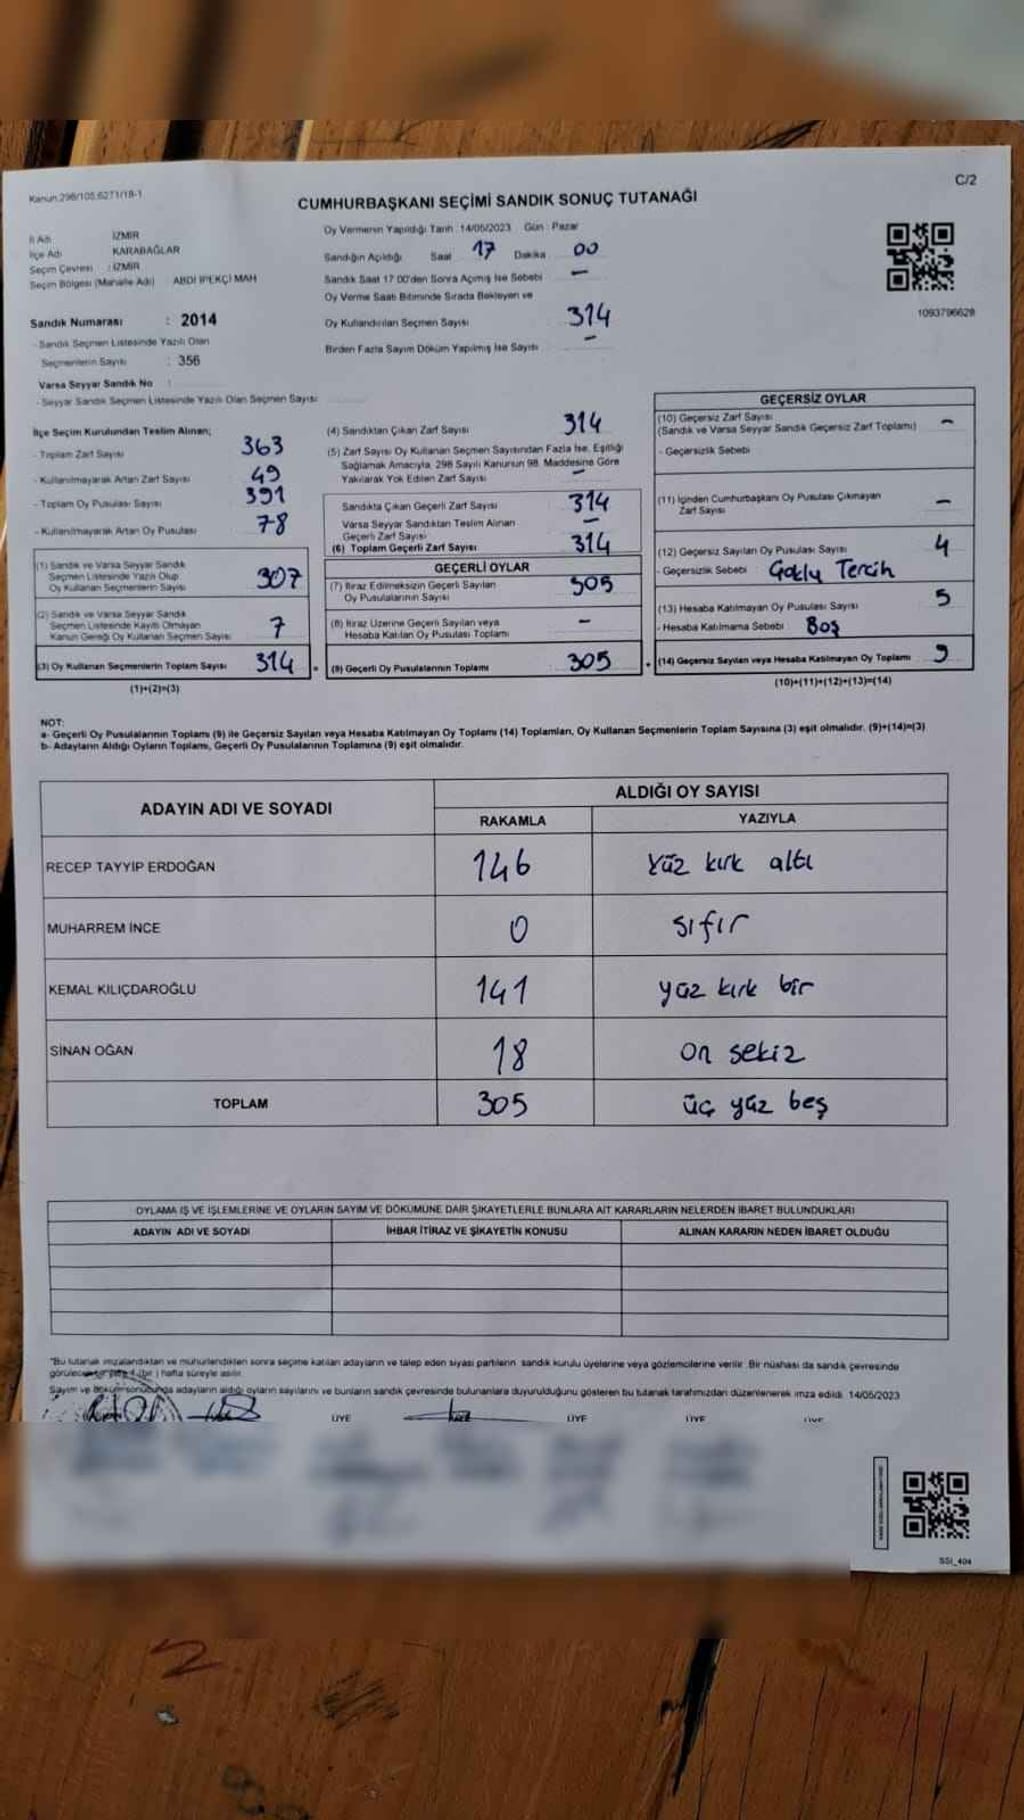 Kanun:298/105,6271/18-1
C/2
CUMHURBAŞKANI SEÇİMİ SANDIK SONUÇ TUTANAĞI
İl Adı İZMİR
İlçe Adı KARABAĞLAR
Seçim Çevresi : İZMİR
Seçim Bölgesi (Mahalle Adı) ABDİ İPEKÇİ MAH
Sandık Numarası : 2014
- Sandık Seçmen Listesinde Yazılı Olan
Seçmenlerin Sayısı : 356
Varsa Seyyar Sandık No :
- Seyyar Sandık Seçmen Listesinde Yazılı Olan Seçmen Sayısı
Oy Vermenin Yapıldığı Tarih : 14/05/2023 Gün : Pazar
Sandığın Açıldığı Saat 17 Dakika 00
Sandık Saat 17:00'den Sonra Açılmış İse Sebebi –
Oy Verme Saati Bitiminde Sırada Bekleyen ve
Oy Kullandırılan Seçmen Sayısı 314
Birden Fazla Sayım Döküm Yapılmış İse Sayısı –
1093796628
İlçe Seçim Kurulundan Teslim Alınan;
- Toplam Zarf Sayısı 363
- Kullanılmayarak Artan Zarf Sayısı 49
- Toplam Oy Pusulası Sayısı 391
- Kullanılmayarak Artan Oy Pusulası 78
(1) Sandık ve Varsa Seyyar Sandık
Seçmen Listesinde Yazılı Olup
Oy Kullanan Seçmenlerin Sayısı 307
(2) Sandık ve Varsa Seyyar Sandık
Seçmen Listesinde Kayıtlı Olmayan
Kanun Gereği Oy Kullanan Seçmen Sayısı 7
(3) Oy Kullanan Seçmenlerin Toplam Sayısı 314 =
(1)+(2)=(3)
(4) Sandıktan Çıkan Zarf Sayısı 314
(5) Zarf Sayısı Oy Kullanan Seçmen Sayısından Fazla İse, Eşitliği
Sağlamak Amacıyla, 298 Sayılı Kanunun 98. Maddesine Göre
Yakılarak Yok Edilen Zarf Sayısı –
Sandıkta Çıkan Geçerli Zarf Sayısı 314
Varsa Seyyar Sandıktan Teslim Alınan
Geçerli Zarf Sayısı –
(6) Toplam Geçerli Zarf Sayısı 314
GEÇERLİ OYLAR
(7) İtiraz Edilmeksizin Geçerli Sayılan
Oy Pusulalarının Sayısı 305
(8) İtiraz Üzerine Geçerli Sayılan veya
Hesaba Katılan Oy Pusulası Toplamı –
(9) Geçerli Oy Pusulalarının Toplamı 305 +
GEÇERSİZ OYLAR
(10) Geçersiz Zarf Sayısı –
(Sandık ve Varsa Seyyar Sandık Geçersiz Zarf Toplamı)
- Geçersizlik Sebebi
(11) İçinden Cumhurbaşkanı Oy Pusulası Çıkmayan
Zarf Sayısı –
(12) Geçersiz Sayılan Oy Pusulası Sayısı 4
- Geçersizlik Sebebi Çoklu Tercih
(13) Hesaba Katılmayan Oy Pusulası Sayısı 5
- Hesaba Katılmama Sebebi Boş
(14) Geçersiz Sayılan veya Hesaba Katılmayan Oy Toplamı 9
(10)+(11)+(12)+(13)=(14)
NOT:
a- Geçerli Oy Pusulalarının Toplamı (9) ile Geçersiz Sayılan veya Hesaba Katılmayan Oy Toplamı (14) Toplamları, Oy Kullanan Seçmenlerin Toplam Sayısına (3) eşit olmalıdır. (9)+(14)=(3)
b- Adayların Aldığı Oyların Toplamı, Geçerli Oy Pusulalarının Toplamına (9) eşit olmalıdır.
ADAYIN ADI VE SOYADI
ALDIĞI OY SAYISI
RAKAMLA YAZIYLA
RECEP TAYYİP ERDOĞAN 146 Yüz kırk altı
MUHARREM İNCE 0 sıfır
KEMAL KILIÇDAROĞLU 141 yüz kırk bir
SİNAN OĞAN 18 on sekiz
TOPLAM 305 üç yüz beş
OYLAMA İŞ VE İŞLEMLERİNE VE OYLARIN SAYIM VE DÖKÜMÜNE DAİR ŞİKAYETLERLE BUNLARA AİT KARARLARIN NELERDEN İBARET BULUNDUKLARI
ADAYIN ADI VE SOYADI İHBAR İTİRAZ VE ŞİKAYETİN KONUSU ALINAN KARARIN NEDEN İBARET OLDUĞU
"Bu tutanak imzalandıktan ve mühürlendikten sonra seçime katılan adayların ve talep eden siyasi partilerin sandık kurulu üyelerine veya gözlemcilerine verilir. Bir nüshası da sandık çevresinde
hafta süreyle asılır.
Sayım ve döküm sonucunda adayların aldığı oyların sayılarını ve bunların sandık çevresinde bulunanlara duyurulduğunu gösteren bu tutanak tarafımızdan düzenlenerek imza edildi. 14/05/2023
ÜYE ÜYE ÜYE ÜYE
SSİ_404